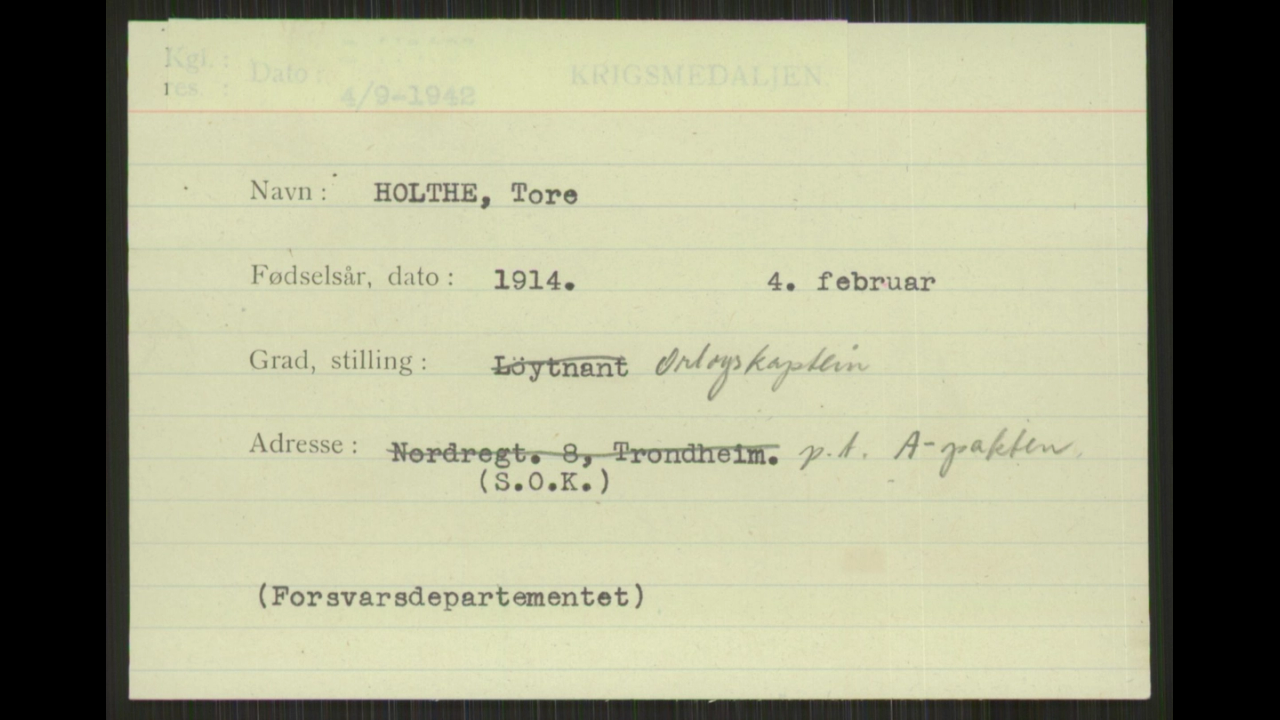 Kgl. :
res. :
Dato :
4/9-1942
KRIGSMEDALJEN
Navn : HOLTHE, Tore
Fødselsår, dato : 1914. 4. februar
Grad, stilling : Löytnant Orlogskaptein
Adresse : Nordregt. 8, Trondheim. p.t. A-pakten.
(S.O.K.)
(Forsvarsdepartementet)